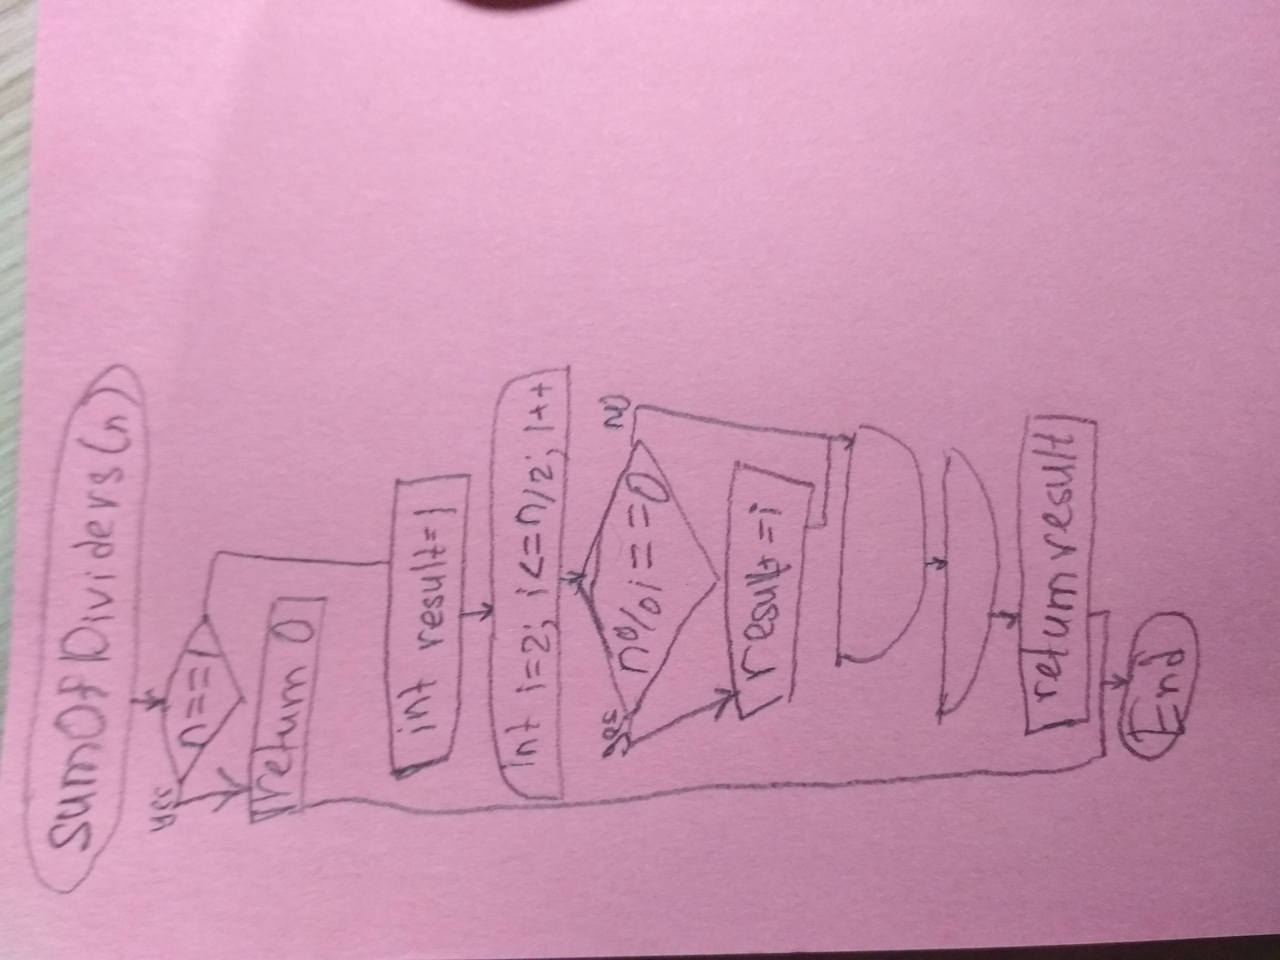 SumOfDividers(n)
n==1
yes
return 0
int result=1
int i=2; i<=n/2; i++
no
n%i==0
yes
result=i
return result
End